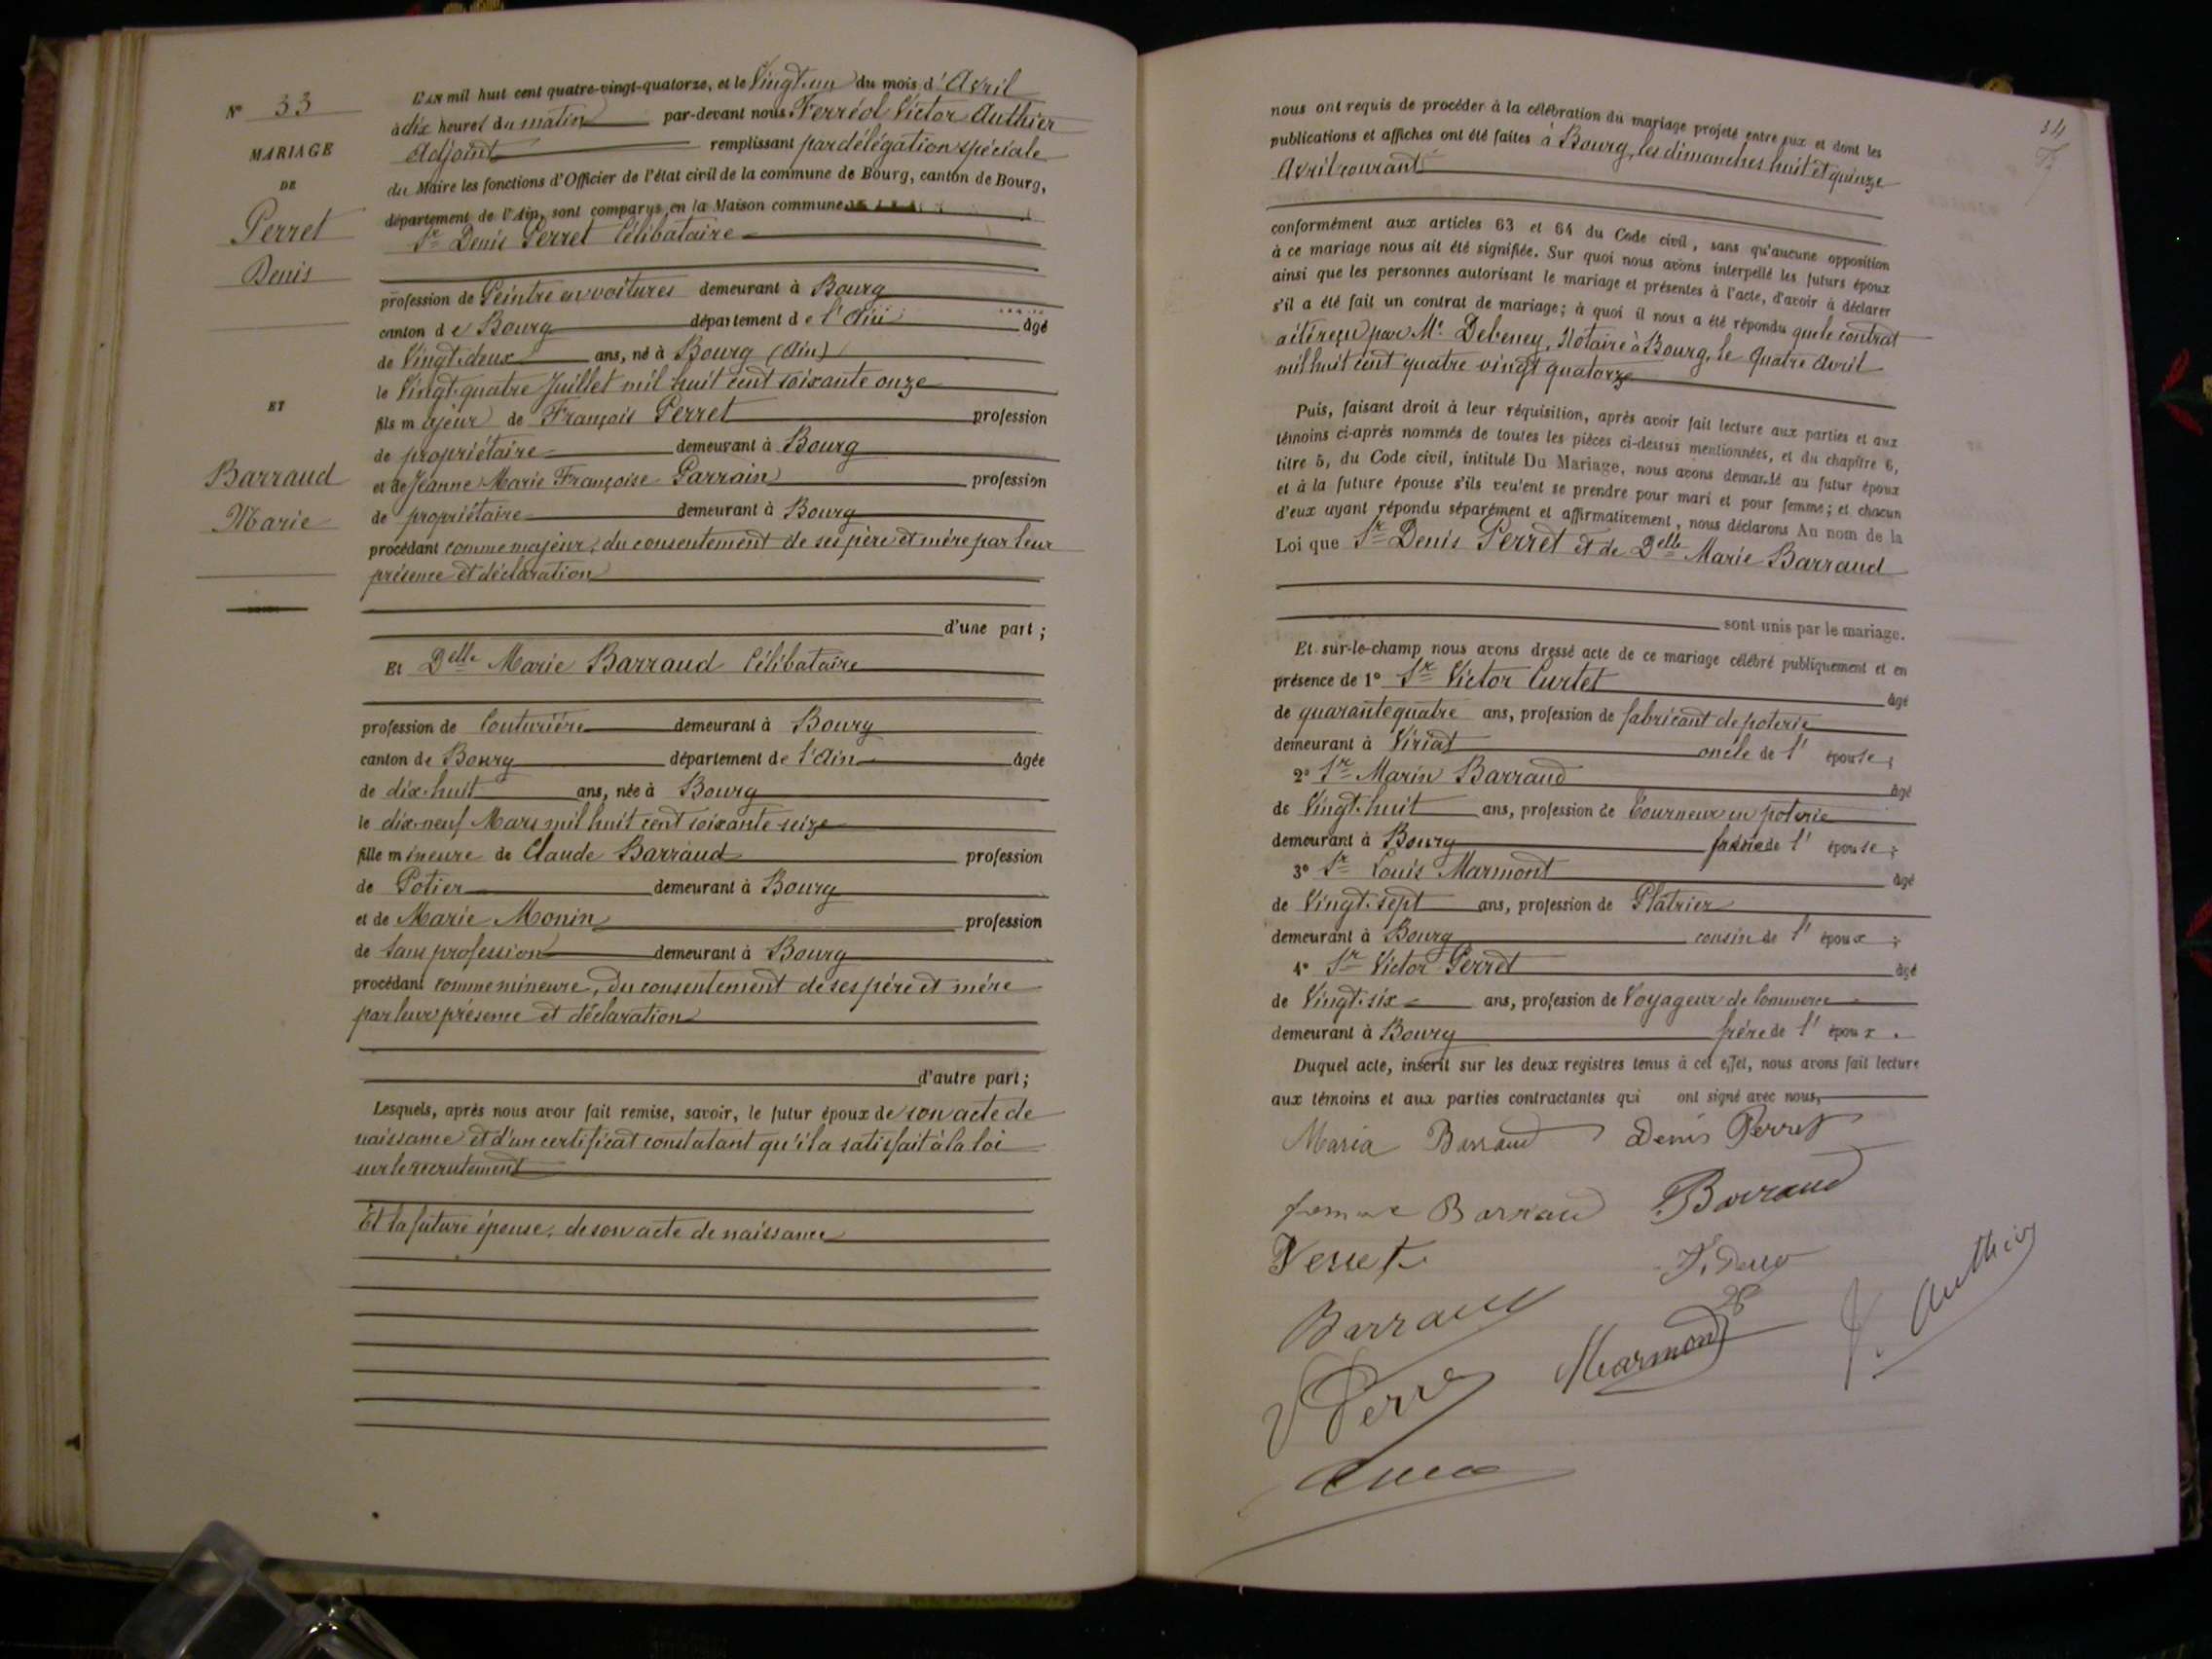 N° 33
MARIAGE
DE
Perret
Denis
ET
Barraud
Marie
L'AN mil huit cent quatre-vingt-quatorze, et le Vingt-un du mois d'Avril
à dix heures du matin par-devant nous Ferréol Victor Authier
Adjoint remplissant par délégation spéciale
du Maire les fonctions d'Officier de l'état civil de la commune de Bourg, canton de Bourg,
département de l'Ain, sont comparus en la Maison commune
Sr Denis Perret Célibataire
profession de Peintre en voitures demeurant à Bourg
canton de Bourg département de l'Ain âgé
de Vingt-deux ans, né à Bourg (Ain)
le Vingt-quatre Juillet mil huit cent soixante onze
fils majeur de François Perret profession
de propriétaire demeurant à Bourg
et de Jeanne Marie Françoise Parrain profession
de propriétaire demeurant à Bourg
procédant comme majeur, du consentement de ses père et mère par leur
présence et déclaration
d'une part ;
Et Delle Marie Barraud Célibataire
profession de Couturière demeurant à Bourg
canton de Bourg département de l'Ain âgée
de dix-huit ans, née à Bourg
le dix-neuf Mars mil huit cent soixante seize
fille mineure de Claude Barraud profession
de Potier demeurant à Bourg
et de Marie Monin profession
de Sans profession demeurant à Bourg
procédant comme mineure, du consentement de ses père et mère
par leur présence et déclaration
d'autre part ;
Lesquels, après nous avoir fait remise, savoir, le futur époux de son acte de
naissance et d'un certificat constatant qu'il a satisfait à la loi
sur le recrutement
Et la future épouse, de son acte de naissance
34
nous ont requis de procéder à la célébration du mariage projeté entre eux et dont les
publications et affiches ont été faites à Bourg, les dimanches huit et quinze
Avril courant
conformément aux articles 63 et 64 du Code civil, sans qu'aucune opposition
à ce mariage nous ait été signifiée. Sur quoi nous avons interpellé les futurs époux
ainsi que les personnes autorisant le mariage et présentes à l'acte, d'avoir à déclarer
s'il a été fait un contrat de mariage ; à quoi il nous a été répondu que le contrat
a été reçu par Me Debeney, Notaire à Bourg, le quatre Avril
mil huit cent quatre vingt quatorze
Puis, faisant droit à leur réquisition, après avoir fait lecture aux parties et aux
témoins ci-après nommés de toutes les pièces ci-dessus mentionnées, et du chapitre 6,
titre 5, du Code civil, intitulé Du Mariage, nous avons demandé au futur époux
et à la future épouse s'ils veulent se prendre pour mari et pour femme ; et chacun
d'eux ayant répondu séparément et affirmativement, nous déclarons Au nom de la
Loi que Sr Denis Perret et de Delle Marie Barraud
sont unis par le mariage.
Et sur-le-champ nous avons dressé acte de ce mariage célébré publiquement et en
présence de 1° Sr Victor Curtet âgé
de quarante quatre ans, profession de fabricant de poterie
demeurant à Viriat oncle de l'épouse ;
2° Sr Marin Barraud âgé
de Vingt-huit ans, profession de Tourneur en poterie
demeurant à Bourg frère de l'épouse ;
3° Sr Louis Marmont âgé
de Vingt-sept ans, profession de Plâtrier
demeurant à Bourg cousin de l'époux ;
4° Sr Victor Perret âgé
de Vingt-six ans, profession de Voyageur de Commerce
demeurant à Bourg frère de l'époux .
Duquel acte, inscrit sur les deux registres tenus à cet effet, nous avons fait lecture
aux témoins et aux parties contractantes qui ont signé avec nous,
Maria Barraud Denis Perret
femme Barraud Barraud
Perret
Barraud
Marmont
V Perret
V. Authier